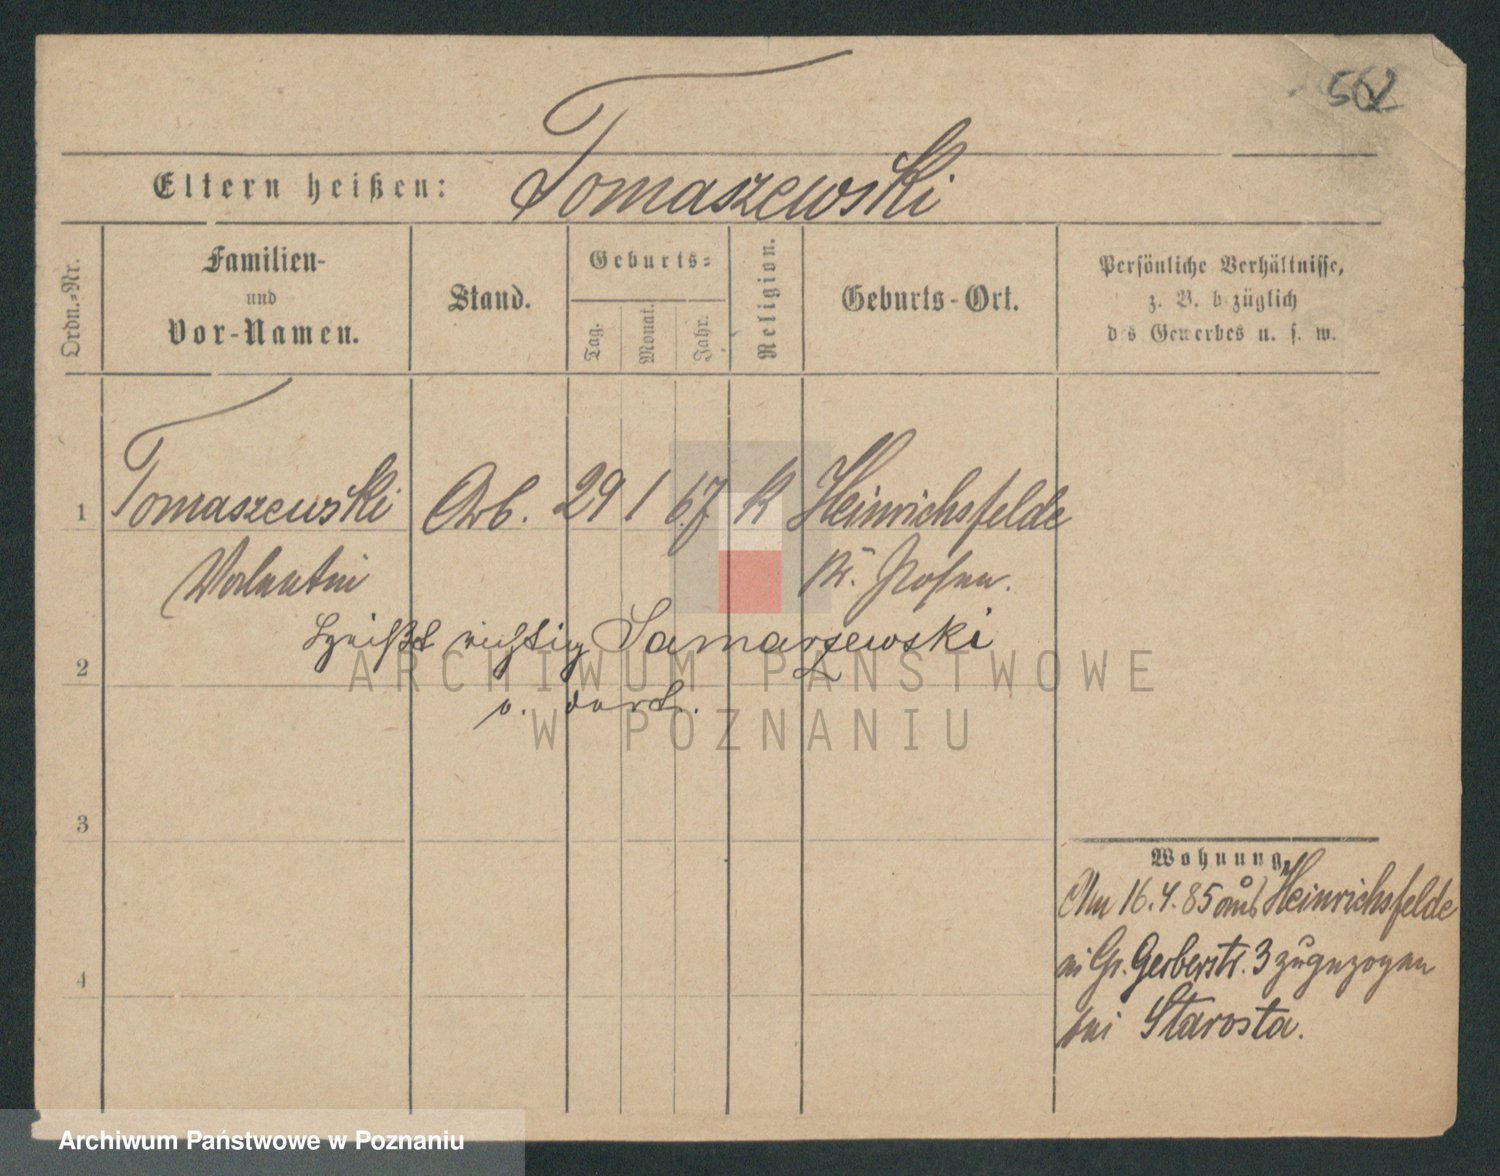 562
Eltern heißen: Tomaszewski
Ordn.=Nr.
Familien-
und
Vor-Namen.
Stand.
Geburts=
Tag.
Monat.
Jahr.
Religion.
Geburts-Ort.
Persönliche Verhältnisse,
z. B. bezüglich
des Gewerbes u. s. w.
1 Tomaszewski Arb. 29 1 67 K Heinrichsfelde
Valentin Kr. Posen.
heißt richtig Samarzewski
2
s. dort.
3
4
Wohnung.
Am 16.4.85 aus Heinrichsfelde
in Gr. Gerberstr. 3 zugezogen
bei Starosta.
ARCHIWUM PAŃSTWOWE
W POZNANIU
Archiwum Państwowe w Poznaniu